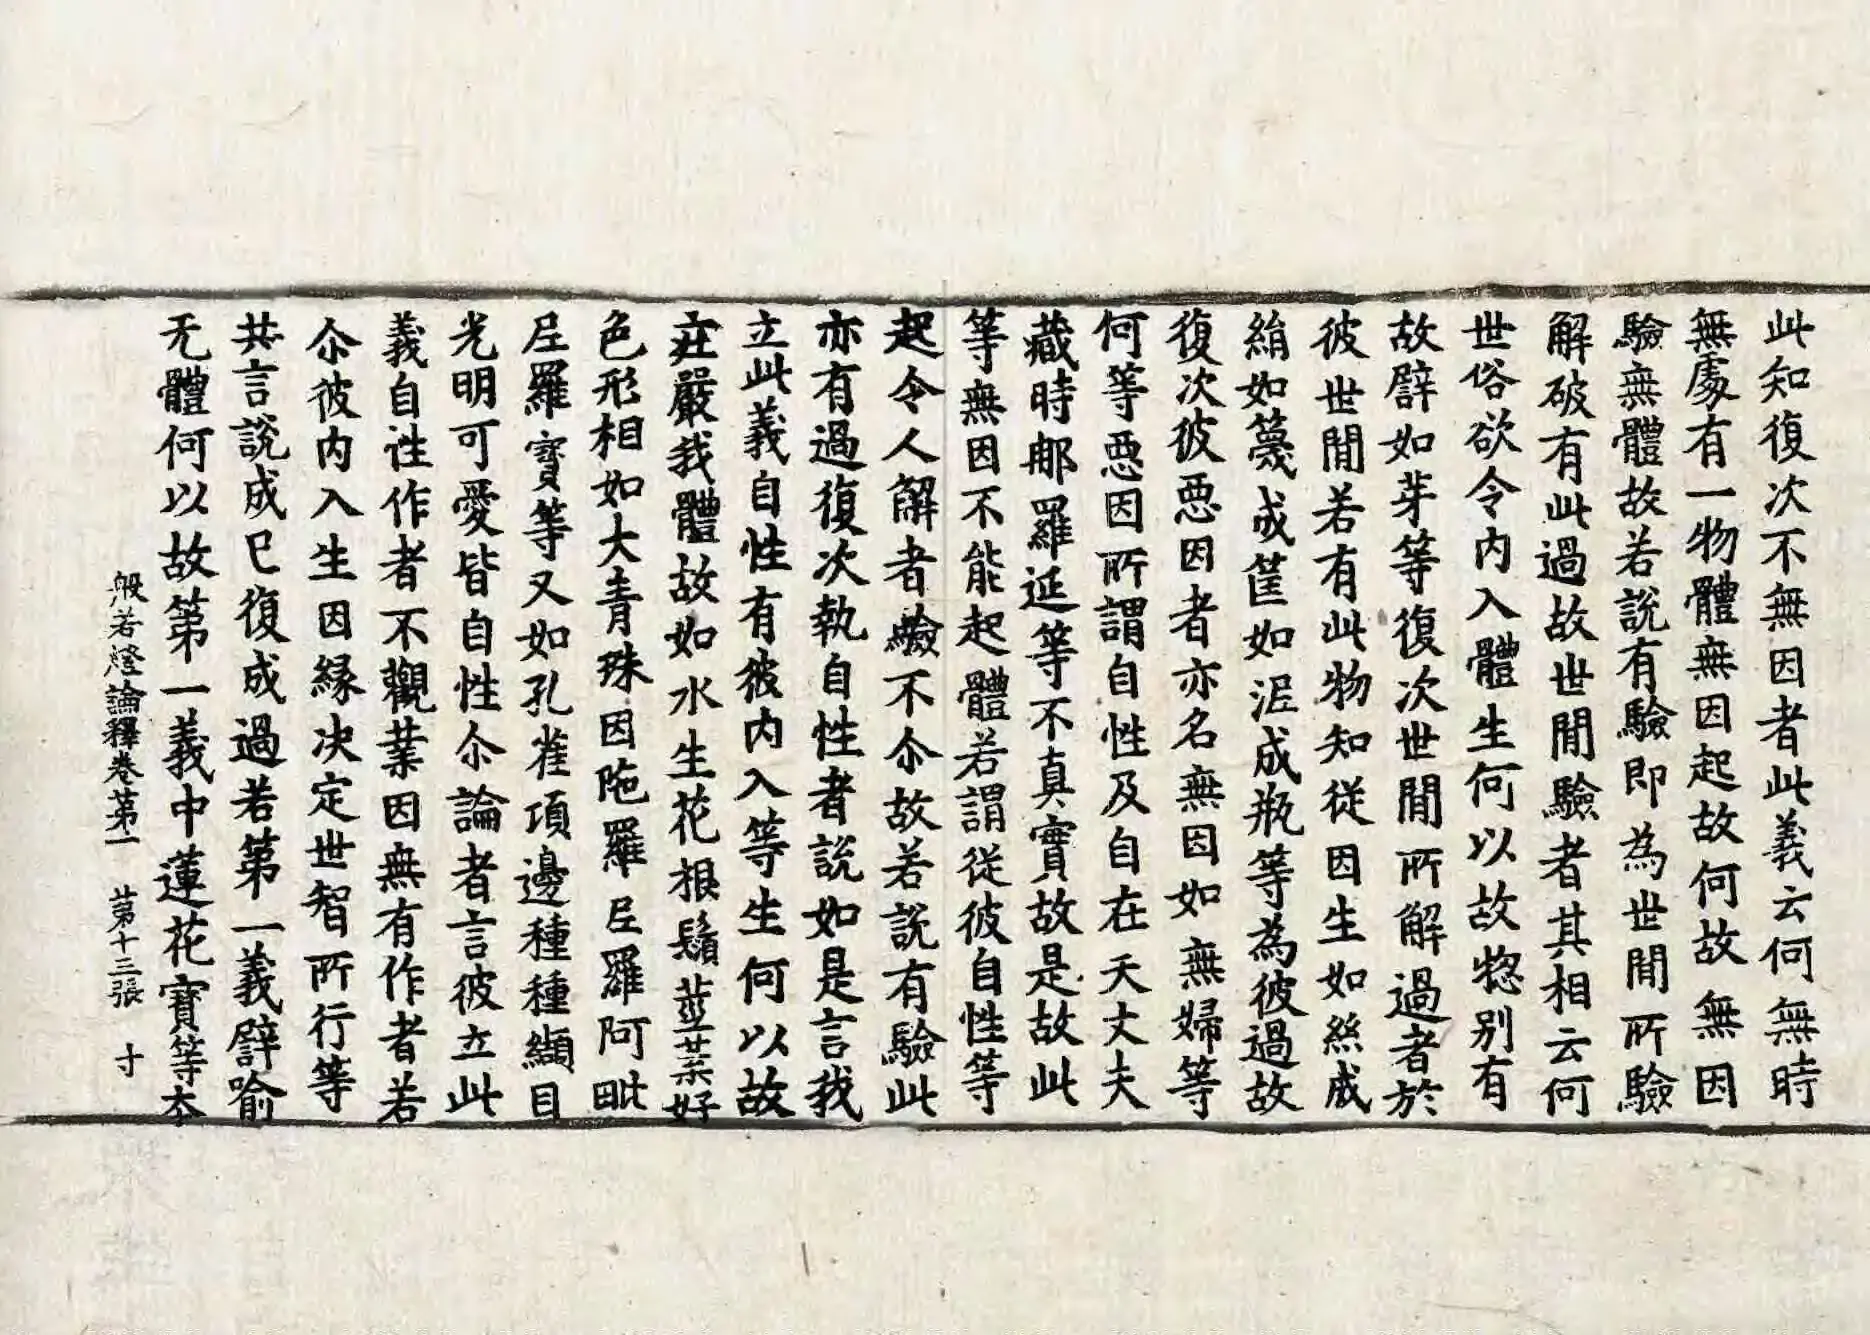 此知復次不無因者此義云何無時
無處有一物體無因起故何故無因
驗無體故若說有驗即為世間所驗
解破有此過故世間驗者其相云何
世俗欲令內入體生何以故惣別有
故譬如芽等復次世間所解過者於
彼世間若有此物知從因生如絲成
絹如篾成筐如泥成瓶等為彼過故
復次彼惡因者亦名無因如無婦等
何等惡因所謂自性及自在天丈夫
藏時那羅延等不真實故是故此
等無因不能起體若謂從彼自性等
起令人解者驗不尒故若說有驗此
亦有過復次執自性者說如是言我
立此義自性有彼內入等生何以故
莊嚴我體故如水生花根鬚莖葉好
色形相如大青珠因陁羅尼羅阿毗
尼羅寶等又如孔雀項邊種種纈目
光明可愛皆自性尒論者言彼立此
義自性作者不觀業因無有作者若
尒彼內入生因緣決定世智所行等
共言說成已復成過若第一義譬喻
无體何以故第一義中蓮花寶等本
般若燈論釋卷第一　第十三張　寸